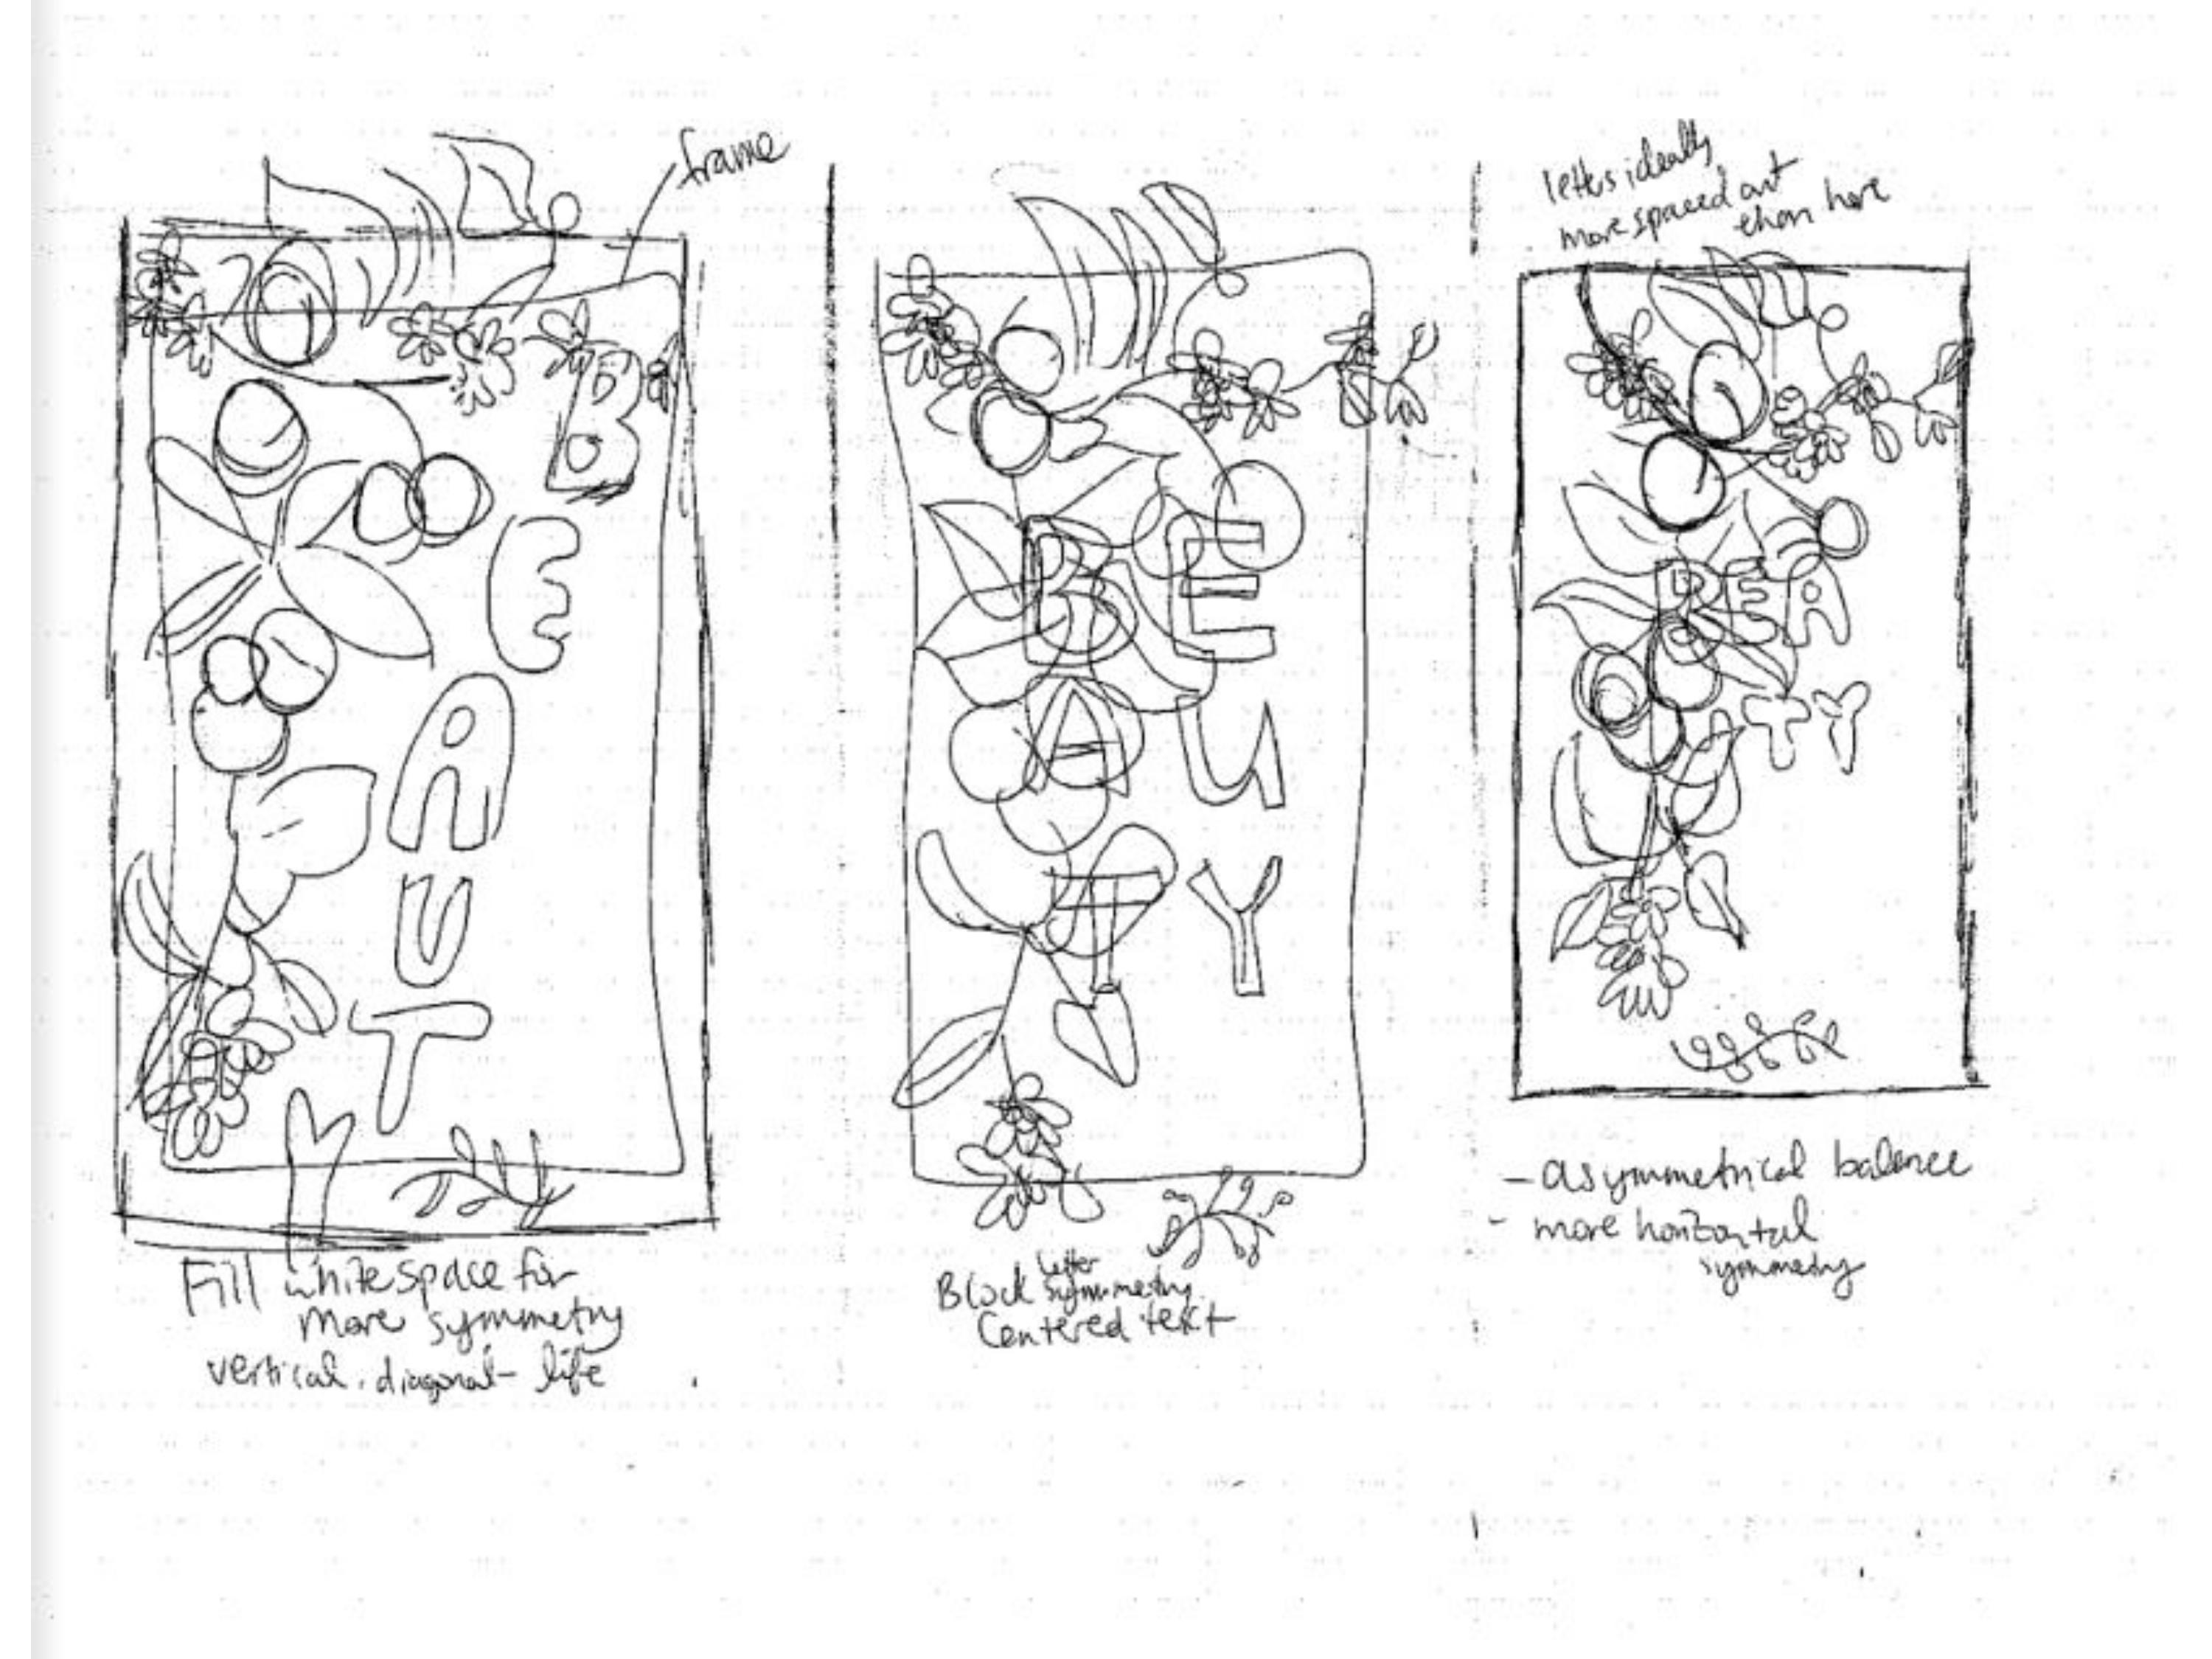 frame
B
E
A
U
T
Y
Fill white space for
more symmetry
vertical. diagonal - life
BE
AU
TY
Block letter symmetry.
Centered text
letters ideally
more spaced out
than here
BEA
TY
- asymmetrical balance
- more horizontal
symmetry